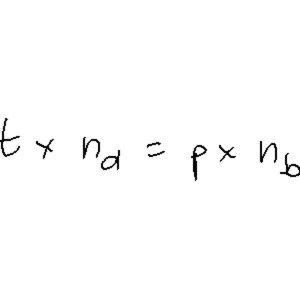 t × n_a = p × n_b